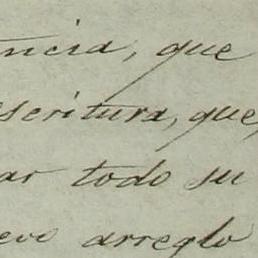 ncia, que
escritura, que,
ar todo su
evo arreglo